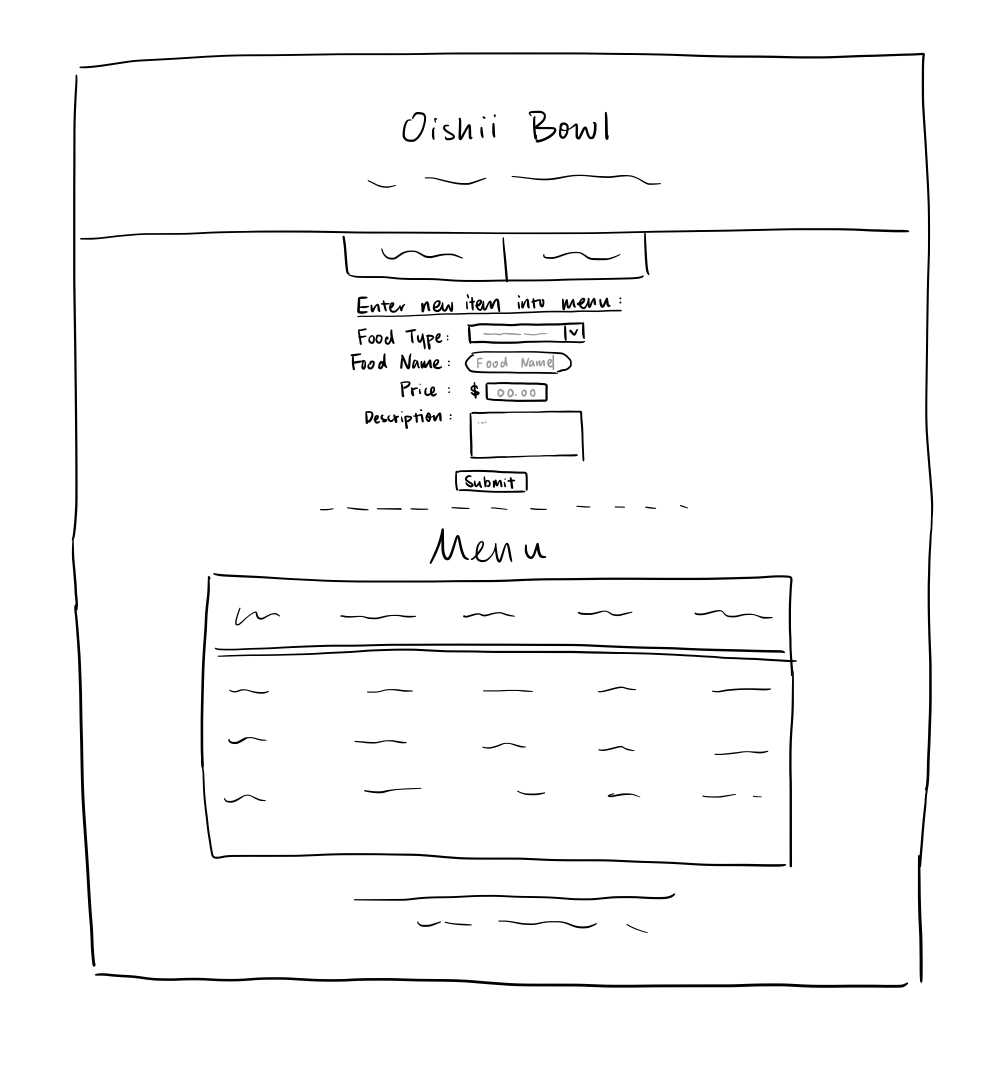 Oishii Bowl
Enter new item into menu:
Food Type:
Food Name: Food Name
Price: $ 00.00
Description: ...
Submit
Menu